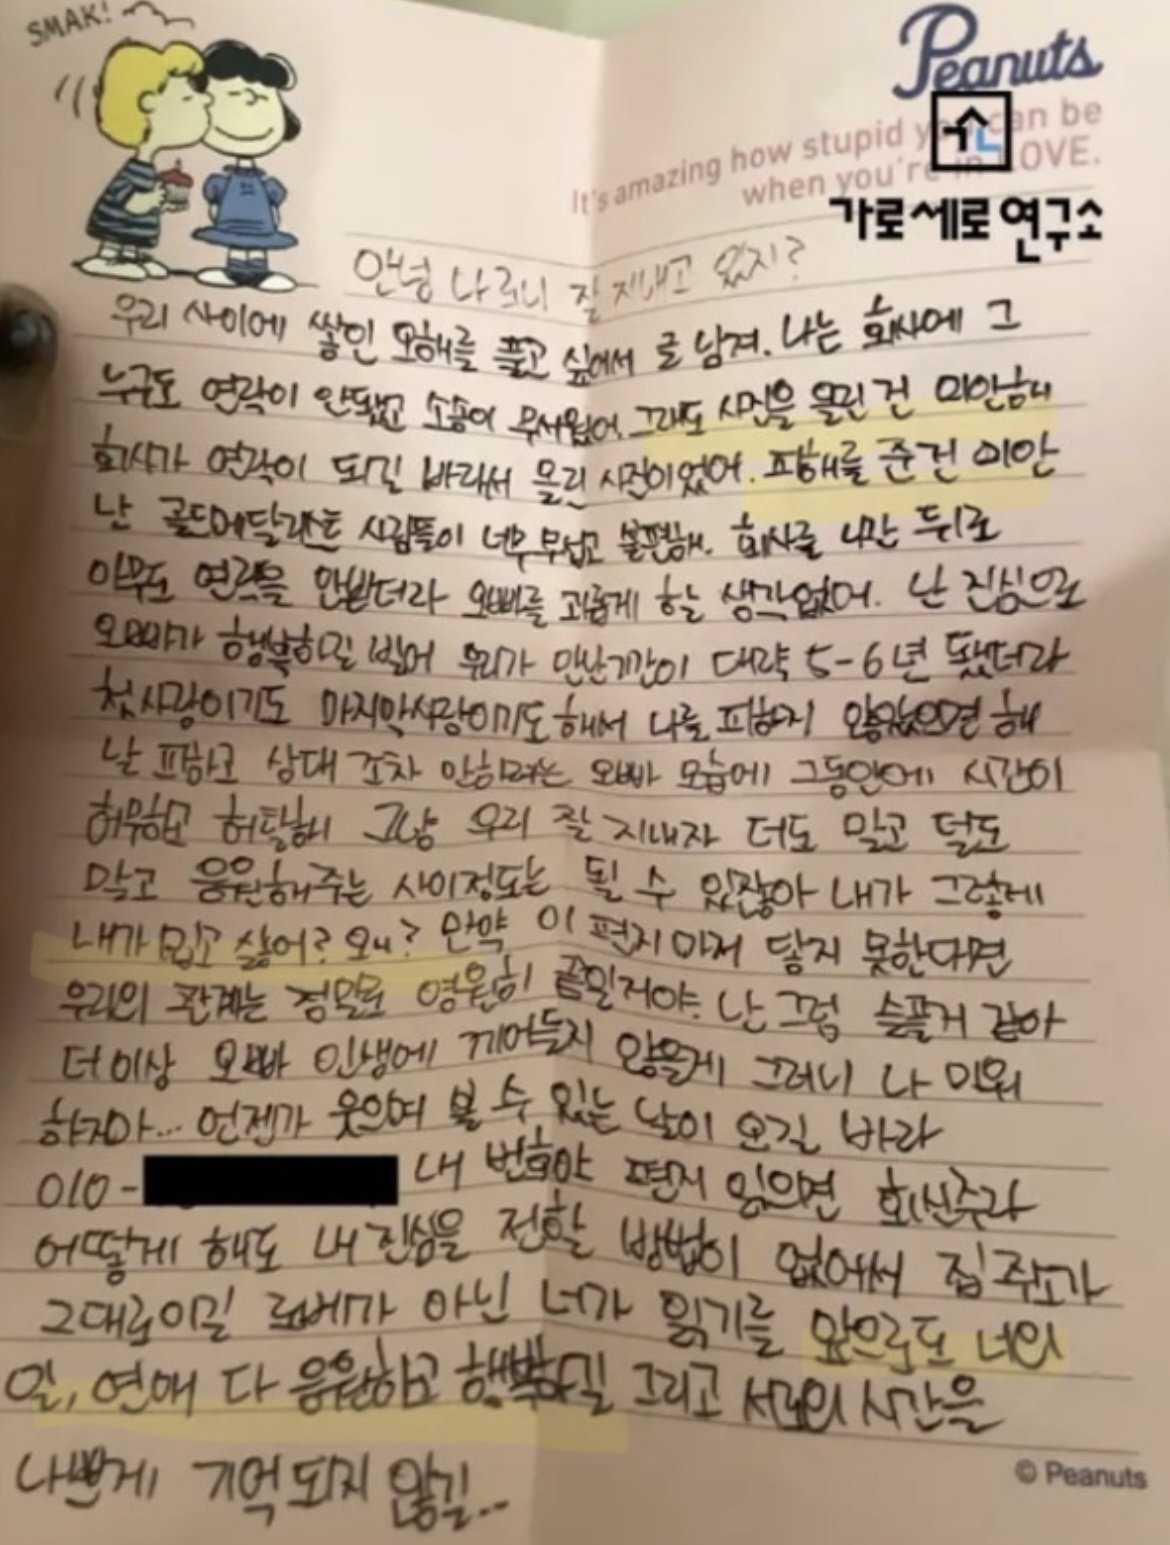 SMAK!
Peanuts
It's amazing how stupid you can be
when you're in LOVE.
가로세로연구소
안녕 나 잘 지내고 있지?
우리 사이에 쌓인 오해를 풀고 싶어서 글 남겨. 나는 회사에 그
누구도 연락이 안됐고 소송이 무서웠어. 그래도 사진을 올린 건 미안해
회사가 연락이 되길 바라서 올린 사진이었어. 피해를 준건 미안
난 골드메달리스트 사람들이 너무 무섭고 불편해. 회사를 나간 뒤로
아무도 연락을 안받더라 오빠를 괴롭게 할 생각없어. 난 진심으로
오빠가 행복하길 빌어 우리가 만난기간이 대략 5-6년 됐더라
첫사랑이기도 마지막사랑이기도 해서 나를 피하지 않았으면 해
날 피하고 상대 조차 안하려는 오빠 모습에 그동안에 시간이
허무하고 허탈해 그냥 우리 잘 지내자 더도 말고 덜도
말고 응원해주는 사이정도는 될 수 있잖아 내가 그렇게
내가 밉고 싫어? 왜? 만약 이 편지마저 닿지 못한다면
우리의 관계는 정말로 영원히 끝일거야. 난 그럼 슬플거 같아
더이상 오빠 인생에 끼어들지 않을게 그러니 나 미워
하지마... 언젠가 웃으며 볼 수 있는 날이 오길 바라
010- 내 번호야 편지 읽으면 회신주라
어떻게 해도 내 진심을 전할 방법이 없어서 집주소가
그대로이길 로베가 아닌 너가 읽기를 앞으로도 너의
일, 연애 다 응원하고 행복하길 그리고 서로의 시간을
나쁘게 기억되지 않길...
© Peanuts